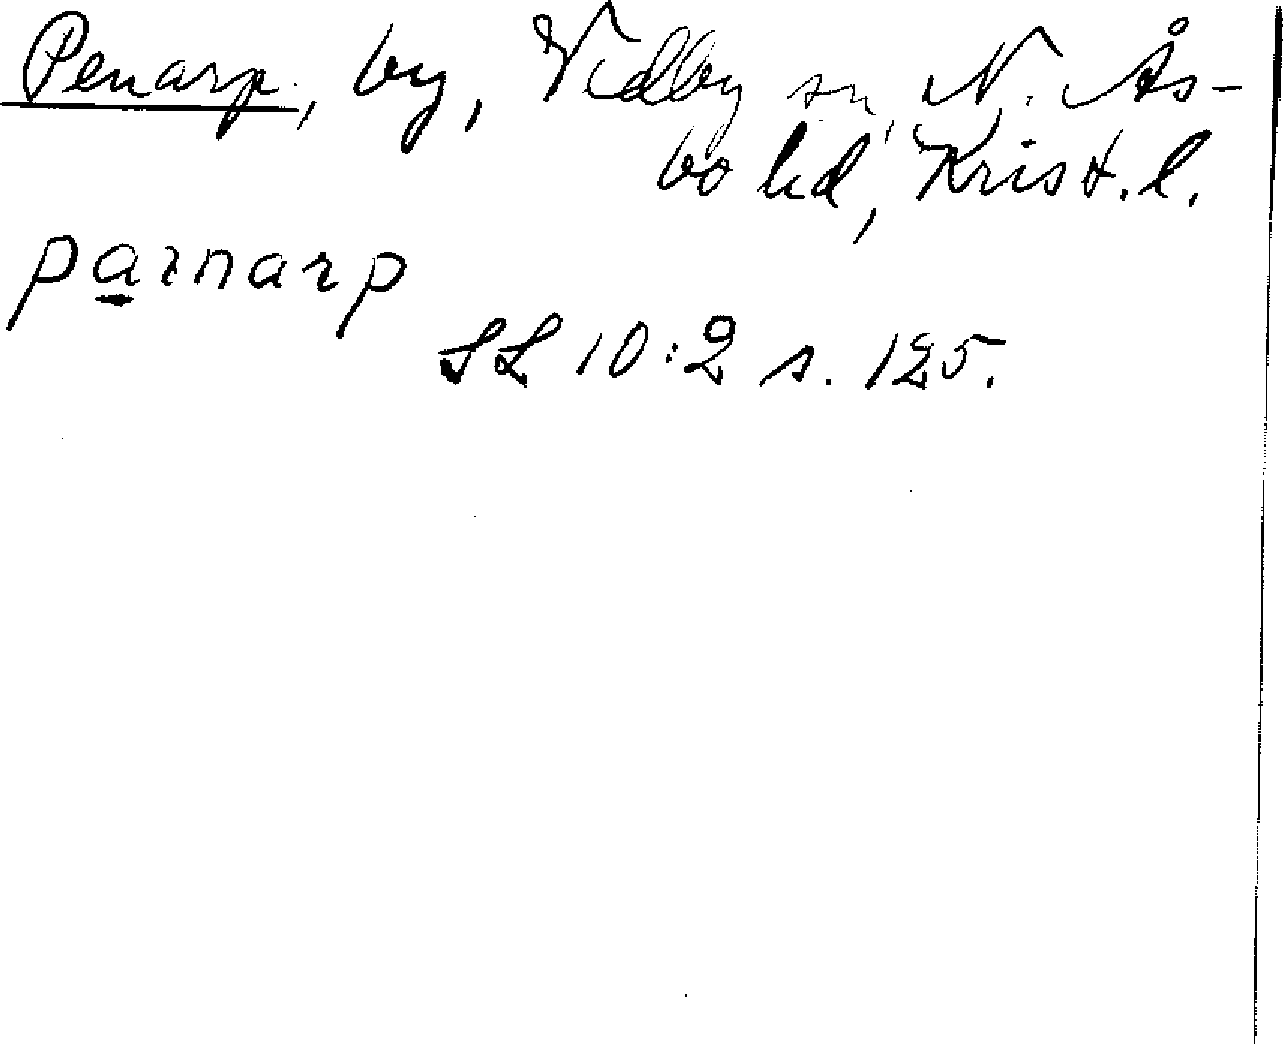 Penarp, by, Vedby sn, N. Ås-
bo hd, Krist. l.
parnarp
SL 10:2 s. 125.